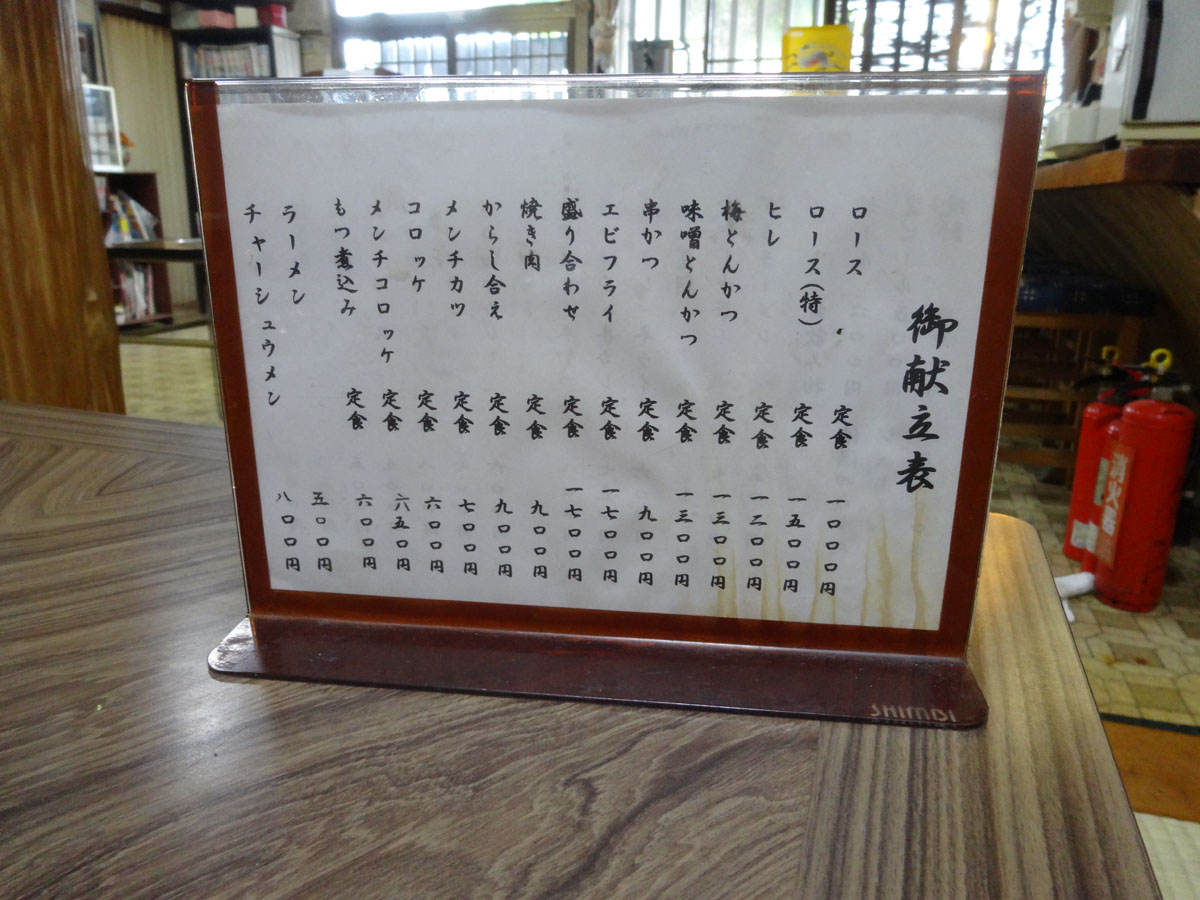 御献立表
ロース 定食 一〇〇〇円
ロース(特) 定食 一五〇〇円
ヒレ 定食 一二〇〇円
梅とんかつ 定食 一三〇〇円
味噌とんかつ 定食 一三〇〇円
串かつ 定食 九〇〇円
エビフライ 定食 一七〇〇円
盛り合わせ 定食 一七〇〇円
焼き肉 定食 九〇〇円
からし合え 定食 九〇〇円
メンチカツ 定食 七〇〇円
コロッケ 定食 六〇〇円
メンチコロッケ 定食 六五〇円
もつ煮込み 定食 六〇〇円
ラーメン 五〇〇円
チャーシュウメン 八〇〇円
SHIMBI
消火器